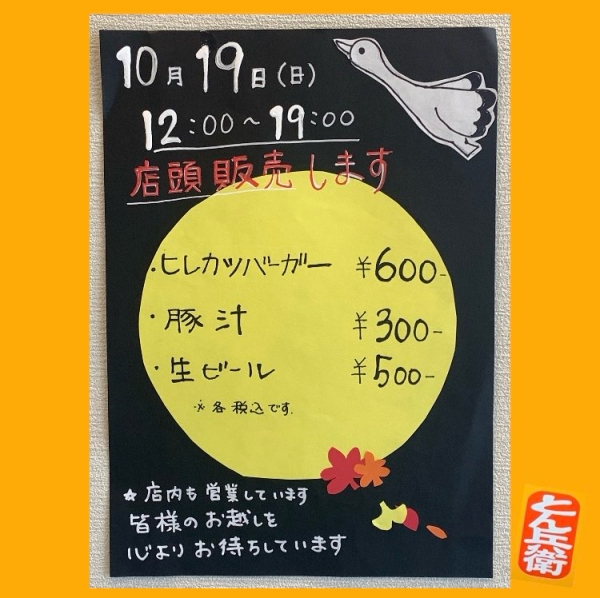 10月19日(日)
12:00〜19:00
店頭販売します
・ヒレカツバーガー ¥600-
・豚汁 ¥300-
・生ビール ¥500-
※各税込です。
☆店内も営業しています
皆様のお越しを
心よりお待ちしています
とん兵衛